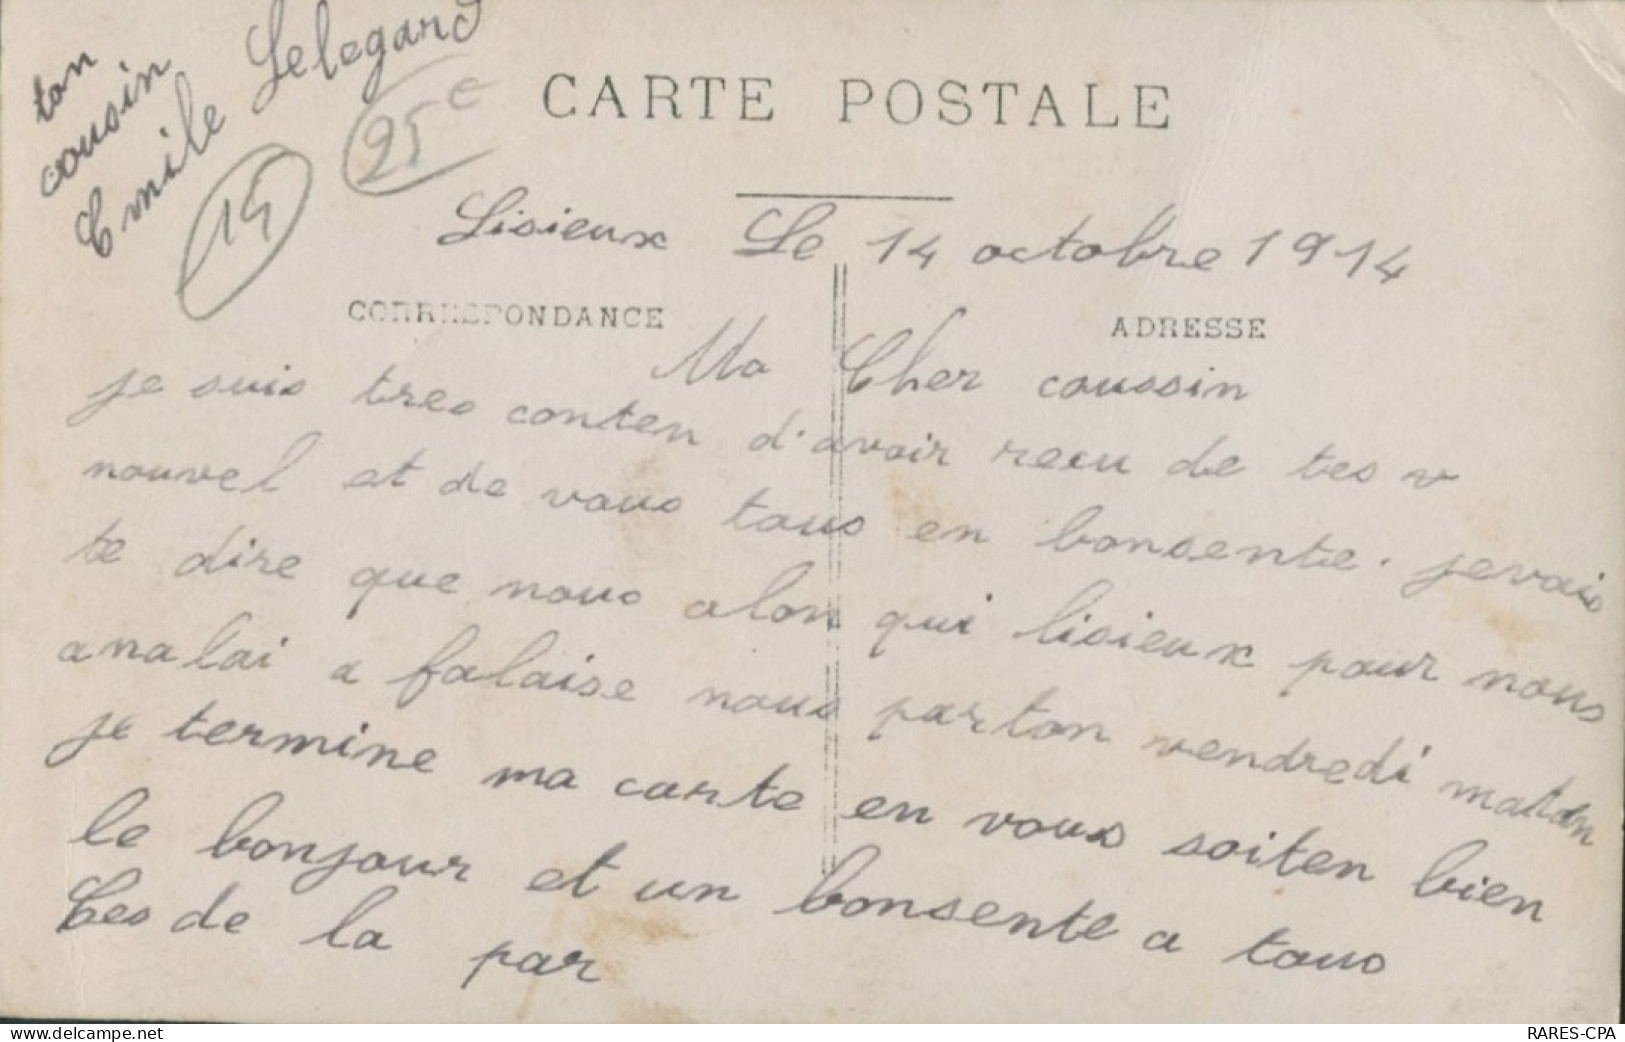 ton
cousin
Emile Lelegard
14
25e
CARTE POSTALE
Lisieux Le 14 octobre 1914
CORRESPONDANCE
ADRESSE
Mo Cher coussin
je suis tres conten d'avoir recu de tes v
nouvel et de vous tous en bonsente. jevais
te dire que nous alon qui lisieux pour nous
analai a falaise nous parton vendredi
je termine ma carte en vous soiten bien
le bonjour et un bonsente a tous
Ces de la par
RARES-CPA